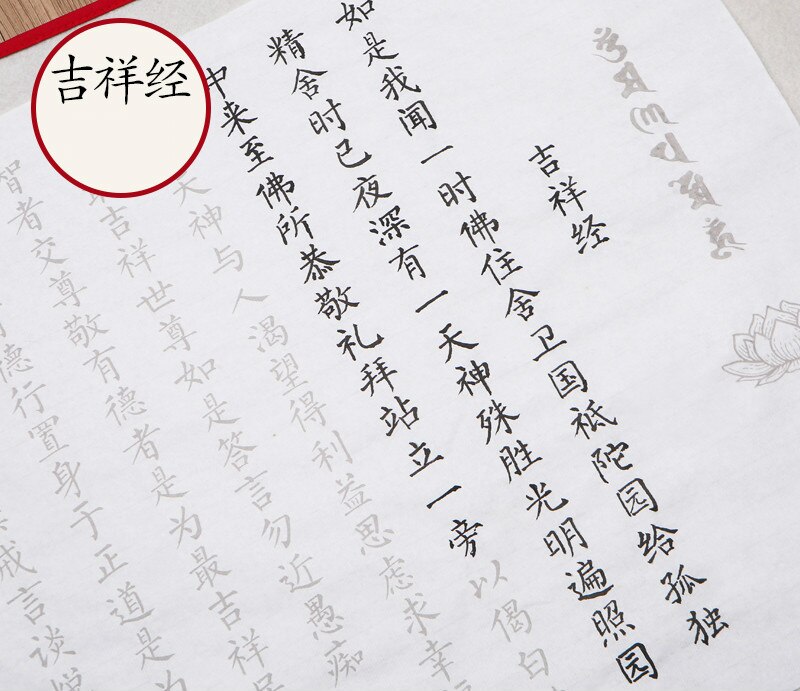 吉祥经
吉祥经
如是我闻一时佛住舍卫国祇陀园给孤独
精舍时已夜深有一天神殊胜光明遍照园
中来至佛所恭敬礼拜站立一旁以偈白
天神与人渴望得利益思虑求幸
吉祥世尊如是答言勿近愚痴
智者交尊敬有德者是为最吉祥
德行置身于正道是为
戒言谈悦